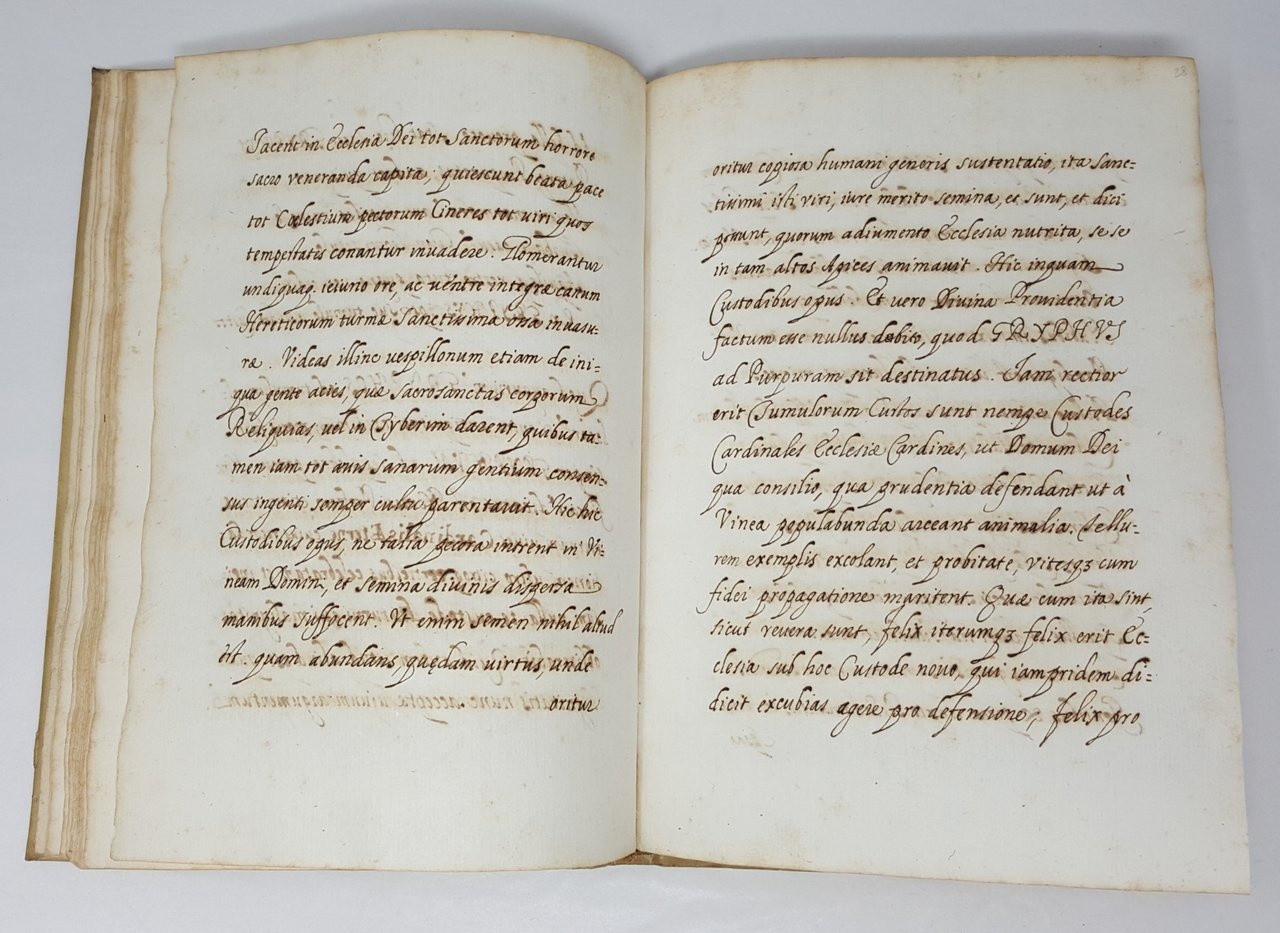 Iacent in Ecclesia Dei tot Sanctorum horrore
sacro veneranda capita; quiescunt beata pace
tot Cœlestium pectorum Cineres tot viri quos
tempestatis conantur invadere. Glomerantur
undiquaq. ieiuno ore, ac ventre integræ canum
Hereticorum turmæ Sanctissima ossa invasu-
ræ. Videas illinc vespillonum etiam de ini=
qua gente acies, quæ sacrosanctas corporum
Reliquias, vel in Tyberim darent, quibus ta-
men iam tot avis sanarum gentium consen=
sus ingenti semper cultu parentavit. Hic hic
Custodibus opus, ne talia pecora intrent in Vi=
neam Domini, et semina divinis dispersa
manibus suffocent. Ut enim semen nihil aliud
est. quam abundans quędam virtus, unde
oritur
28
oritur copiosa humani generis sustentatio, ita Sanc=
tissimi isti viri, iure merito semina, et sunt, et dici
possunt, quorum adiumento Ecclesia nutrita, se se
in tam altos Apices animavit. Hic inquam
Custodibus opus. Et vero Divina Providentia
factum esse nullus debito, quod GRYPHVS
ad Purpuram sit destinatus. Iam rectior
erit Tumulorum Custos sunt nempe Custodes
Cardinales Ecclesiæ Cardines, ut Domum Dei
qua consilio, qua prudentia defendant ut à
Vinea populabunda arceant animalia. Tellu-
rem exemplis excolant, et probitate, vitesqꝫ cum
fidei propagatione maritent. Quæ cum ita sint,
sicut revera sunt, felix iterumqꝫ felix erit Ec=
clesia sub hoc Custode novo, qui iampridem di=
dicit excubias agere pro defensione, felix pro